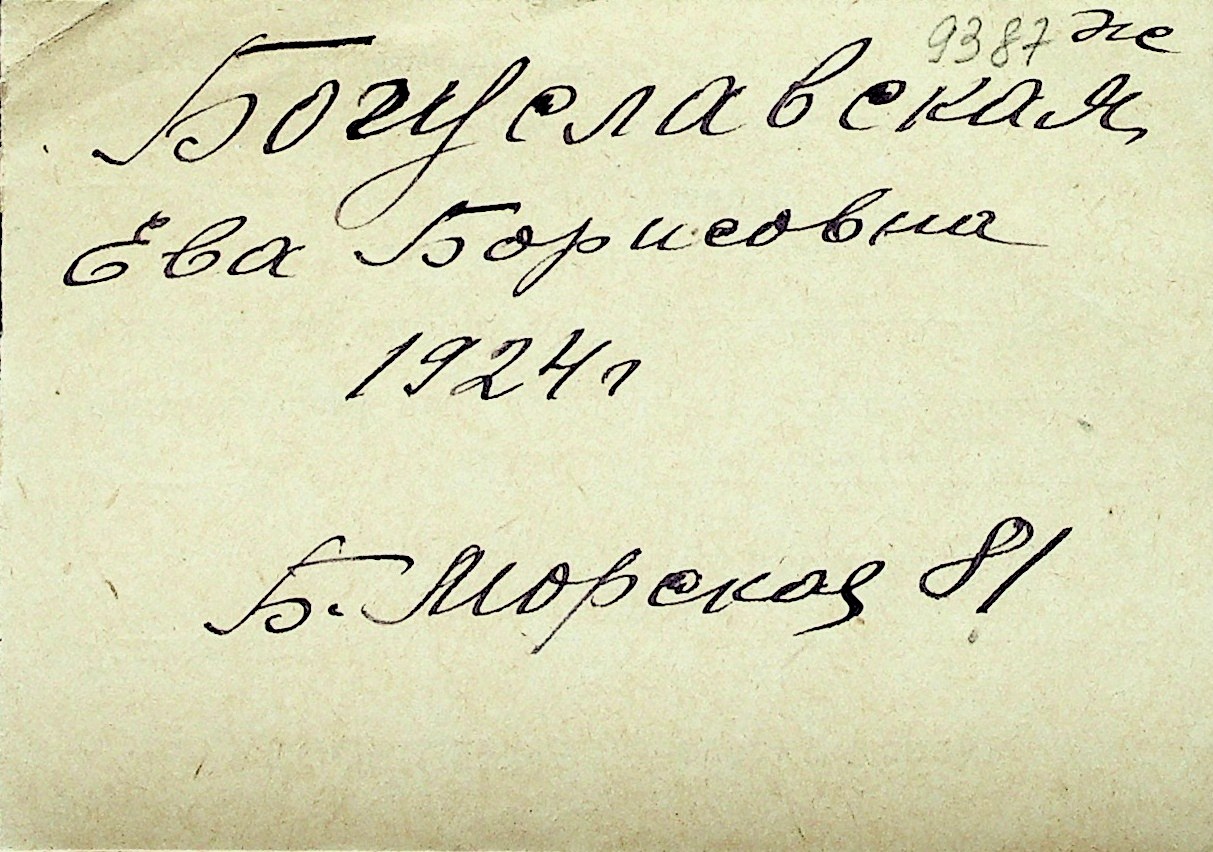 9387 же
Богуславская,
Ева Борисовна
1924 г
Б. Морская 81